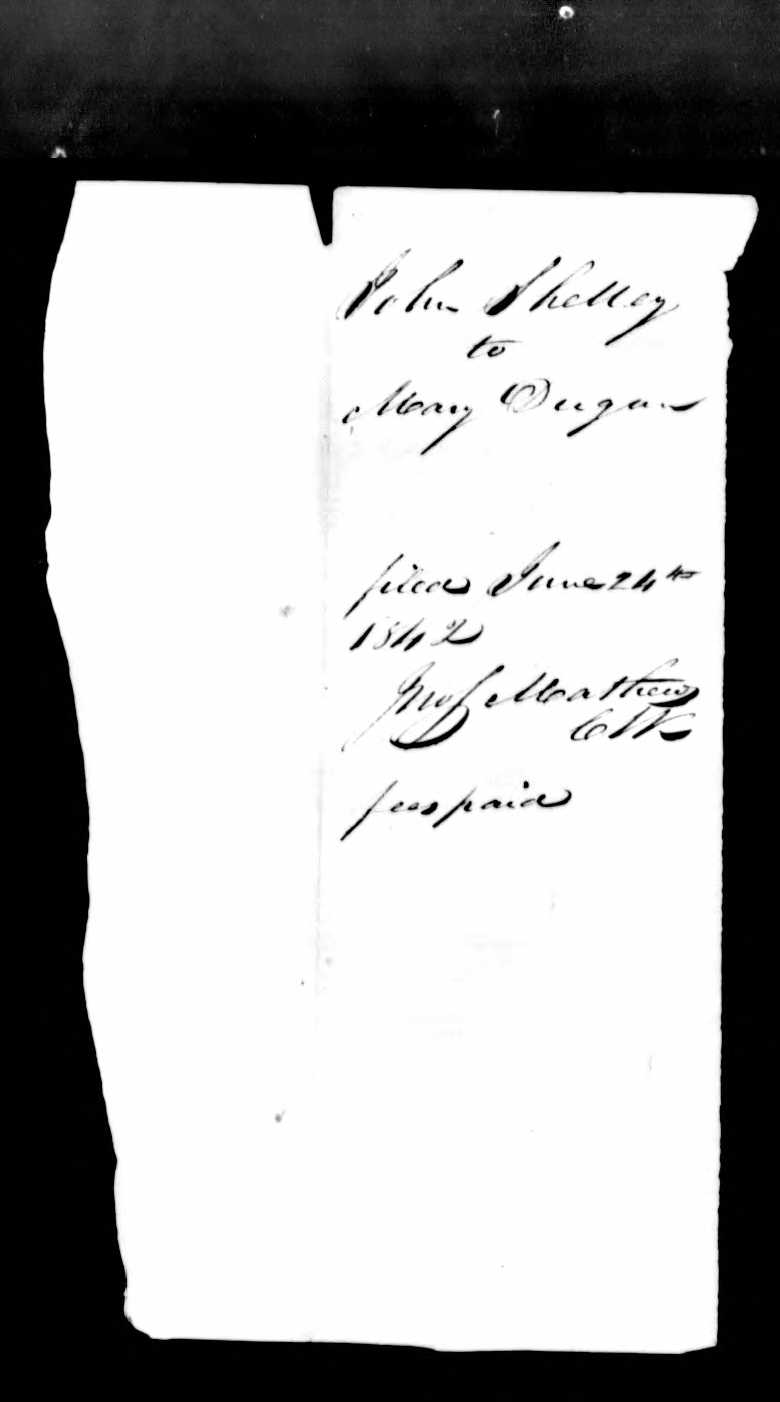 John Shelley
to
Mary Dugan
filed June 24th
1842
Mathews
Clk
fees paid